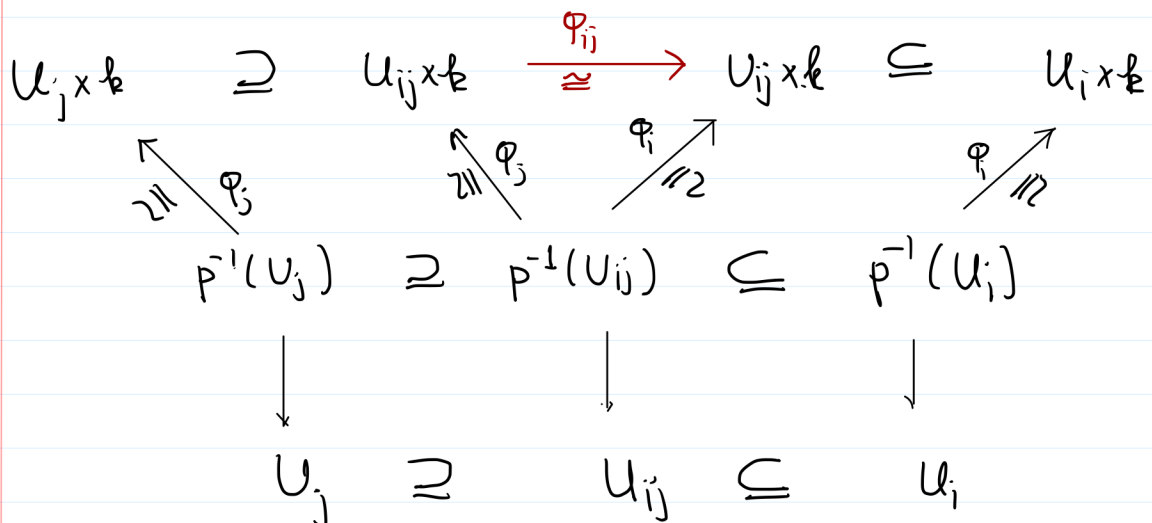 φij
Uj×k ⊇ Uij×k ≅ Uij×k ⊆ Ui×k
≅ φj ≅ φj φi ≅ φi ≅
p⁻¹(Uj) ⊇ p⁻¹(Uij) ⊆ p⁻¹(Ui)
Uj ⊇ Uij ⊆ Ui